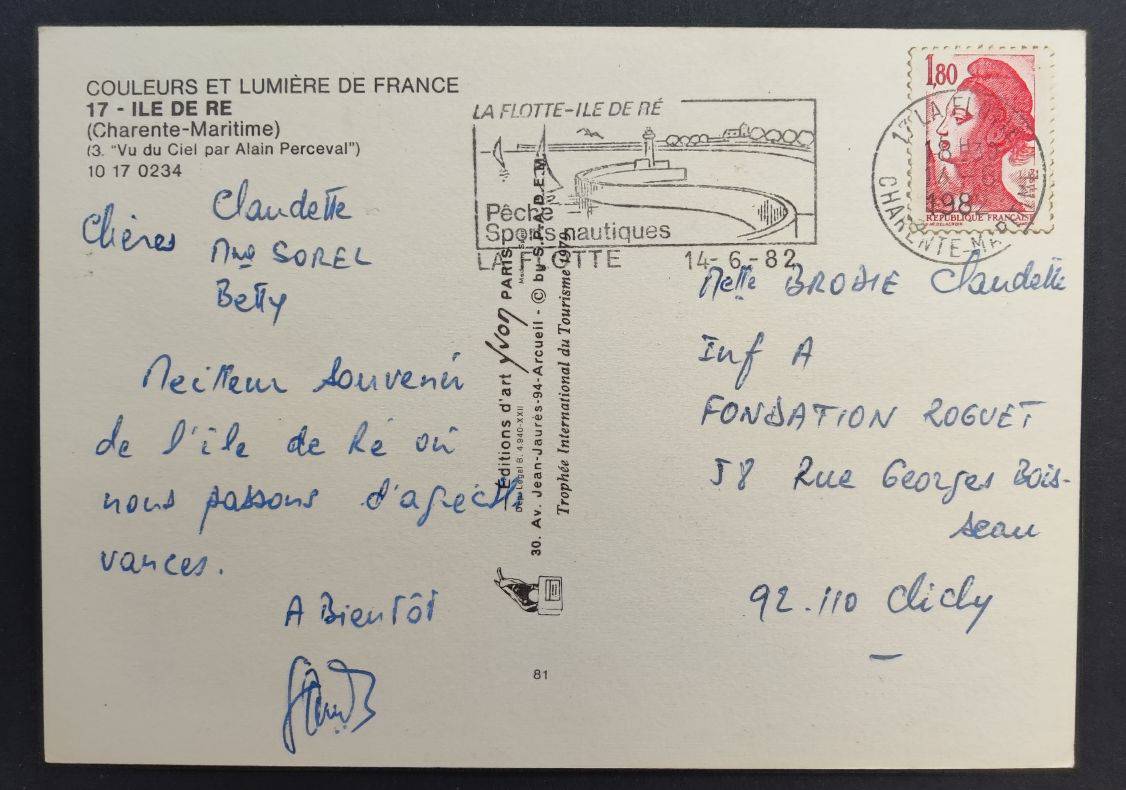 COULEURS ET LUMIÈRE DE FRANCE
17 - ILE DE RE
(Charente-Maritime)
(3. "Vu du Ciel par Alain Perceval")
10 17 0234
Chères Claudette
Mme SOREL
Betty
Meilleur souvenir
de l'île de Ré où
nous passons d'agréables
vances.
A Bientôt
LA FLOTTE-ILE DE RÉ
Pêche
Sports nautiques
LA FLOTTE 14-6-82
1,80
RÉPUBLIQUE FRANÇAISE
17 LA FLOTTE
18 H
14-6
1982
CHARENTE-MAR
Editions d'art yvon PARIS
Dép. Légal B. 4.940-XXII
30. Av. Jean-Jaurès-94-Arcueil - © by S.P.A.D.E.M.
Trophée International du Tourisme 1979
81
Melle BRODIE Claudette
Inf A
FONDATION ROGUET
58 Rue Georges Bois-
seau
92.110 Clichy